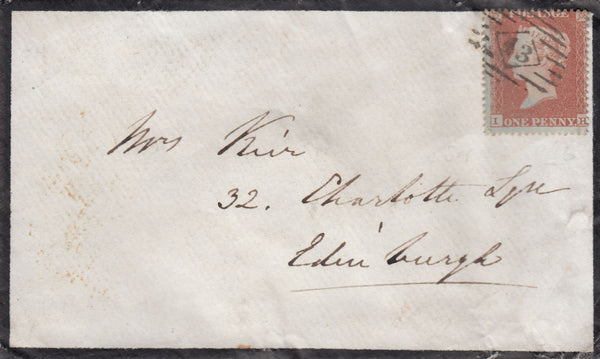 POSTAGE
ONE PENNY
Mrs Keir
32. Charlotte Sqre
Edinburgh